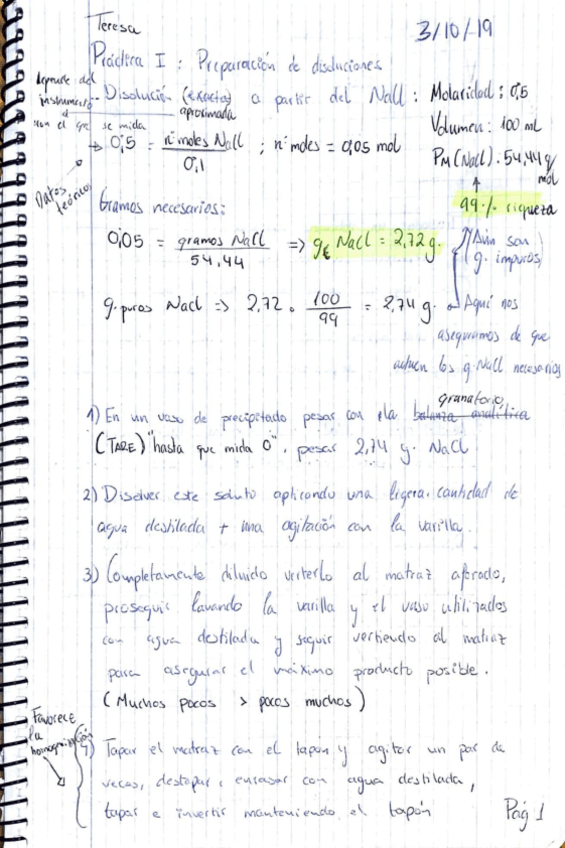 Teresa
3/10/19
Práctica I : Preparación de disoluciones
depende del
instrumento
con el que se mida
Disolución (exacta) a partir del NaCl : Molaridad : 0,5
aproximada
Volumen : 100 mL
0,5 = nº moles NaCl / 0,1 ; nº moles = 0,05 mol
PM (NaCl) . 54,44 g/mol
Datos teóricos
99 % riqueza
Gramos necesarios:
0,05 = gramos NaCl / 54,44 => g NaCl = 2,72 g.
Aún son
g. impuros
g. puros NaCl => 2,72 . 100/99 = 2,74 g.
Aquí nos
aseguramos de que
actúen los g NaCl necesarios
granatorio
1) En un vaso de precipitado pesar con la balanza analítica
(TARE) "hasta que mida 0", pesar 2,74 g. NaCl
2) Disolver este soluto aplicando una ligera cantidad de
agua destilada + una agitación con la varilla.
3) Completamente diluido verterlo al matraz aforado,
proseguir lavando la varilla y el vaso utilizados
con agua destilada y seguir vertiendo al matraz
para asegurar el máximo producto posible.
(Muchos pocos > pocos muchos)
Favorece
la
homogeneización
4) Tapar el matraz con el tapón y agitar un par de
veces, destapar, enrasar con agua destilada,
tapar e invertir manteniendo el tapón
Pág 1